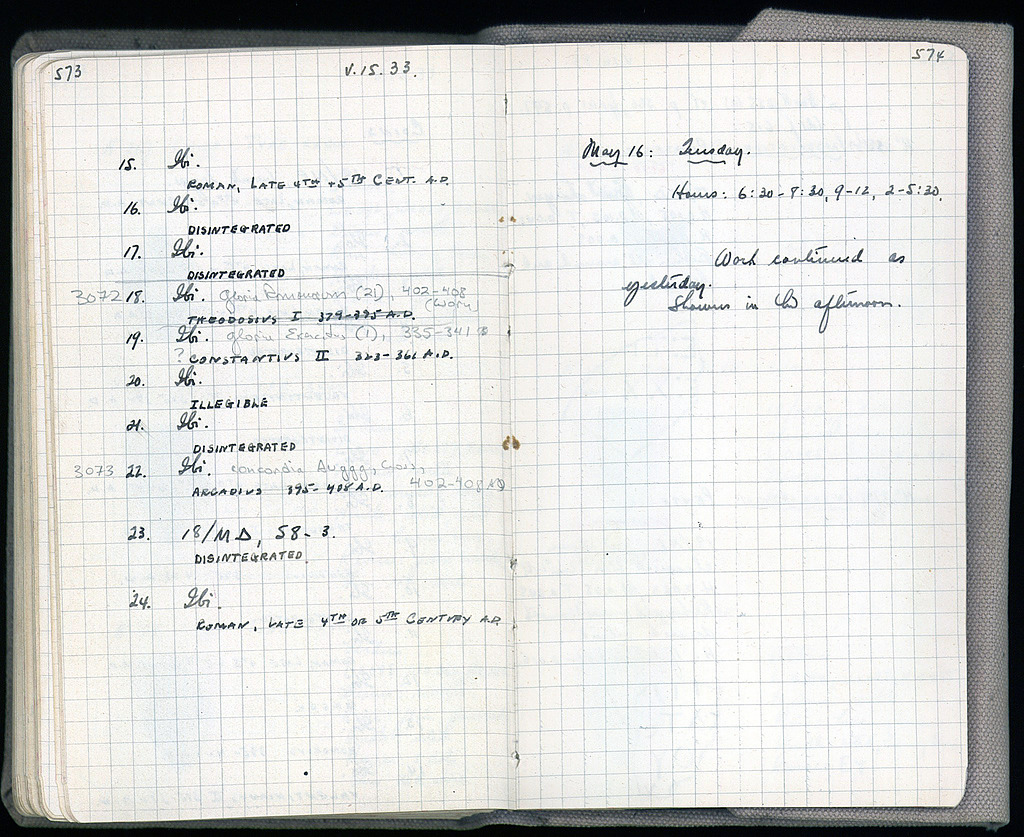 573
V. 15. 33.
15. Ibi.
ROMAN, LATE 4TH + 5TH CENT. A.D.
16. Ibi.
DISINTEGRATED
17. Ibi.
DISINTEGRATED
3072 18. Ibi. Gloria Romanorum (21), 402-408
(worn)
THEODOSIUS I 379-395 A.D.
19. Ibi. Gloria Exercitus (1), 335-341
? CONSTANTIUS II 323-361 A.D.
20. Ibi.
ILLEGIBLE
21. Ibi.
DISINTEGRATED
3073 22. Ibi. Concordia Auggg, Cross,
ARCADIUS 395-408 A.D. 402-408 AD
23. 18/ΜΔ, 58-3.
DISINTEGRATED.
24. Ibi.
ROMAN, LATE 4TH OR 5TH CENTURY A.D.
574
May 16: Tuesday.
Hours: 6:30-8:30, 9-12, 2-5:30.
Work continued as
yesterday.
Showers in the afternoon.